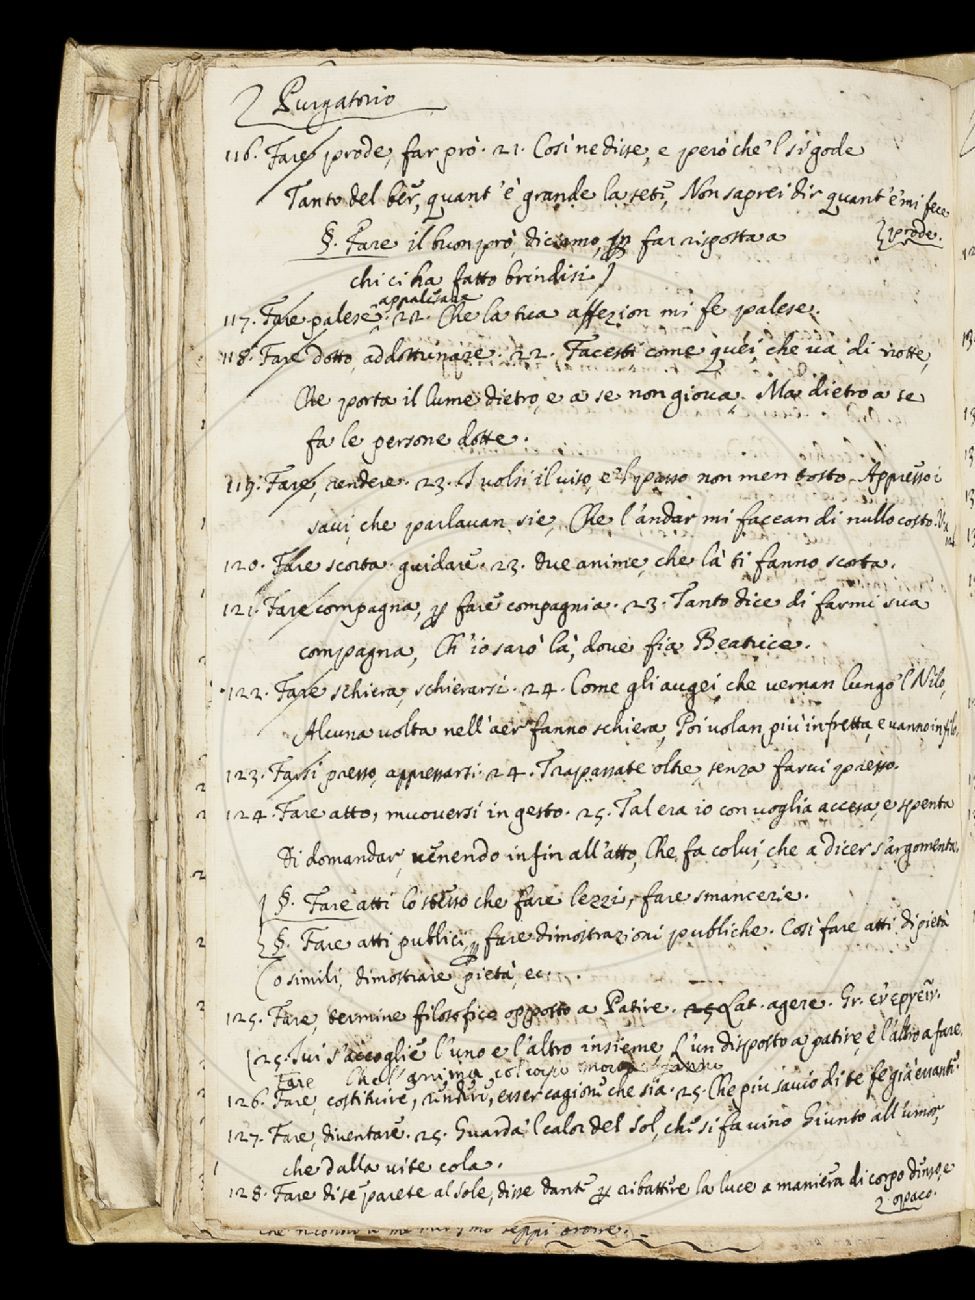 Purgatorio
116. Fare prode, far prò. 21. Così ne disse, e però che 'l si gode
Tanto del ber, quant'è grande la sete, Non saprei dir quant'e' mi fece
prode.
§. Fare il buon prò, diciamo, per far risposta a
chi ci ha fatto brindisi
appalesare
117. Fare palese. 22. Che la tua affezion mi fe palese.
118. Fare dotto, addottrinare. 22. Facesti come quei, che va di notte,
Che porta il lume dietro, e a se non giova, Ma dietro a se
fa le persone dotte.
119. Fare, rendere. 23. I volsi il viso, e 'l passo non men tosto Appresso i
savi, che parlavan sie, Che l'andar mi facean di nullo costo.
120. Fare scorta guidare. 23. due anime, che là ti fanno scorta.
121. Fare compagna, per fare compagnia. 23. Tanto dice di farmi sua
compagna, Ch'io sarò là, dove fia Beatrice.
122. Fare schiera, schierarsi. 24. Come gli augei, che vernan lungo 'l Nilo,
Alcuna volta nell'aer fanno schiera, Poi volan più in fretta, e vanno in filo.
123. Farsi presso, appressarsi. 24. Trapassate oltre, senza farvi presso.
124. Fare atto, muoversi in gesto. 25. Tal era io con voglia accesa, e spenta
Di domandar, venendo infin all'atto, Che fa colui, che a dicer s'argomenta.
§. Fare atti lo stesso che fare lezzi, fare smancerie.
§. Fare atti publici, per fare dimostrazioni publiche. Così fare atti di pietà
o simili, dimostrare pietà, ec.
125. Fare, termine filosofico opposto a Patire. Lat. agere. Gr. ἐνεργεῖν.
25. Ivi s'accoglie l'uno e l'altro insieme, L'un disposto a patire, e l'altro a fare,
Fare
126. Fare, costituire, rendere, esser cagione che sia. 25. Che più savio di te fe già errante.
127. Fare, diventare. 25. Guarda 'l calor del Sol, che si fa vino Giunto all'umor,
che dalla vite cola.
128. Fare di se parete al sole, disse Dante per ribattere la luce a maniera di corpo denso, e
opaco.